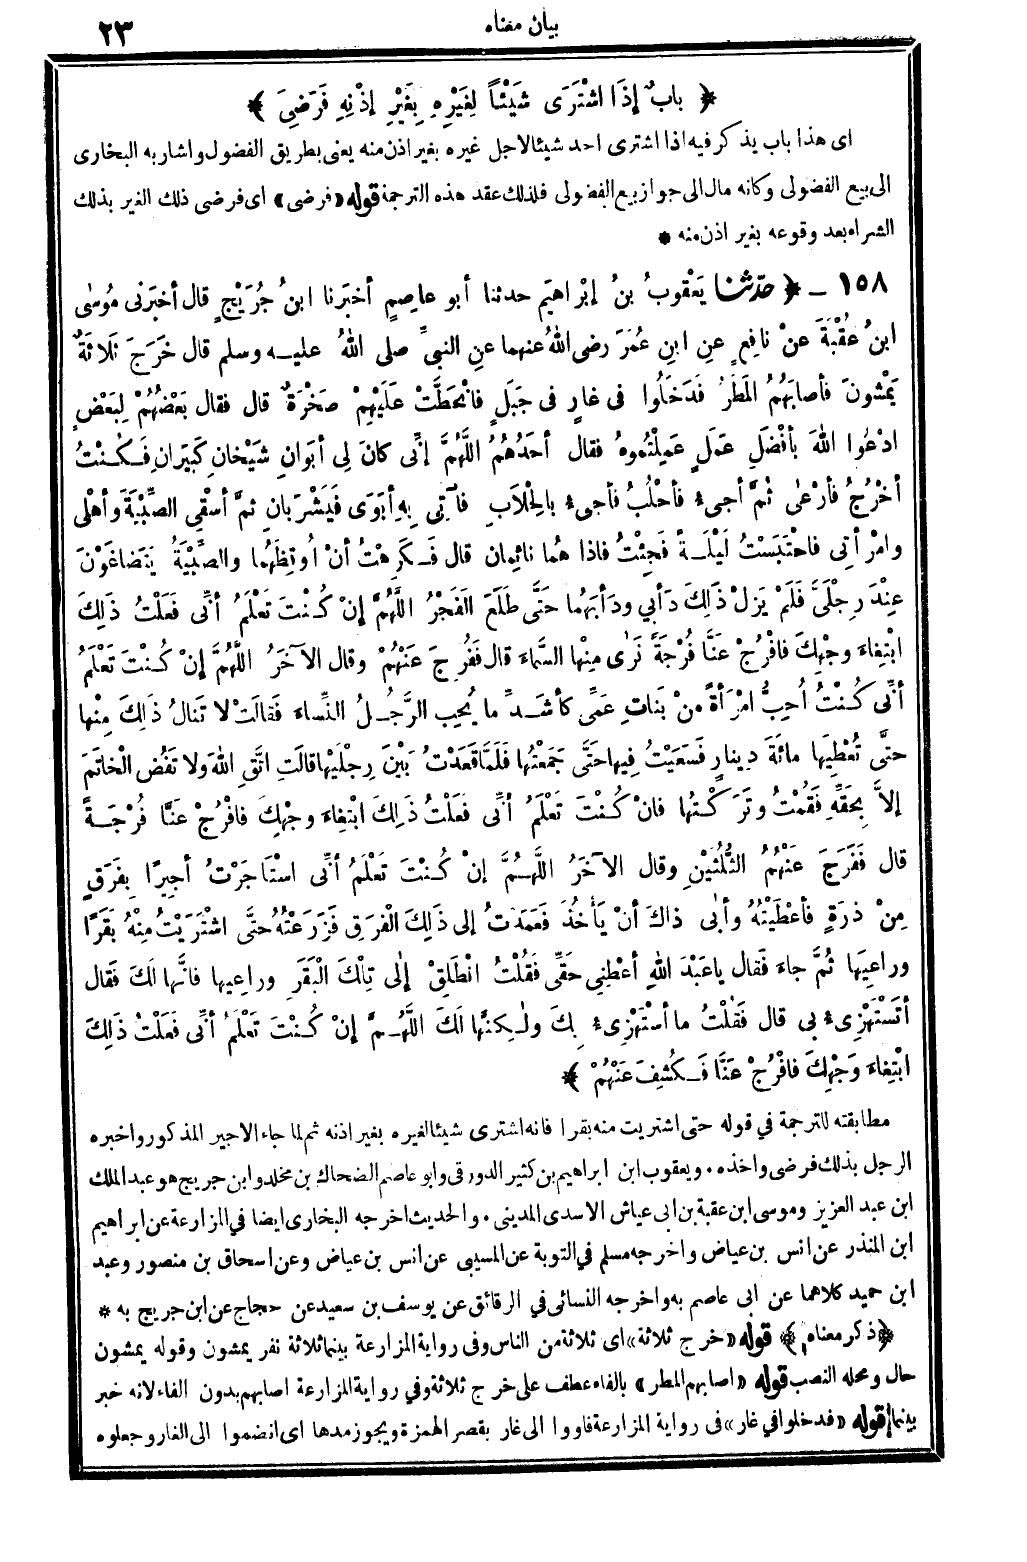 بيان معناه ٢٣
﴿ بابٌ إذَا اشْتَرَى شَيْئاً لِغَيْرِهِ بِغَيْرِ إذْنِهِ فَرَضِىَ ﴾
اى هذا باب يذكر فيه اذا اشترى احد شيئا لاجل غيره بغير اذن منه يعنى بطريق الفضول واشار به البخارى
الى بيع الفضولى وكانه مال الى جواز بيع الفضولى فلذلك عقد هذه الترجمة قوله «فرضى» اى فرضى ذلك الغير بذلك
الشراء بعد وقوعه بغير اذن منه *
١٥٨ ـ ﴿ حدّثنا يَعْقوبُ بنُ إبْراهيمَ حدثنا أبو عاصِمٍ أخبَرنا ابنُ جُرَيْجٍ قال أخبَرنى مُوسَى
ابنُ عُقْبَةَ عنْ نافِعٍ عنِ ابنِ عُمَرَ رضى اللهُ عنهما عنِ النبىِّ صلى اللهُ عليه وسلم قال خَرَجَ ثَلاثَةٌ
يَمْشونَ فأصابَهُمُ المَطَرُ فَدَخَلُوا فى غارٍ فى جَبَلٍ فانْحَطَّتْ علَيْهِمْ صَخْرَةٌ قال فقال بَعْضُهُمْ لِبَعْضٍ
ادْعُوا اللهَ بأفْضَلِ عَمَلٍ عَمِلْتُموهُ فقال أحدُهُمُ اللَّهُمَّ إنِّى كانَ لِى أبَوانِ شَيْخانِ كَبِيَرانِ فَكُنْتُ
أخْرُجُ فأرْعٰى ثُمَّ أجىءُ فأحْلُبُ فأجىءُ بالحِلَابِ فآتِى بِهِ أبَوَىَّ فَيَشْرَبانِ ثمَّ أسْقِى الصِّبْيَةَ وأهْلى
وامْرأتِى فاحْتَبَسْتُ لَيْلَةً فَجِئْتُ فاذا هُما نائِمان قال فَكَرِهْتُ أنْ أُوقِظَهُما والصِّبْيَةُ يتَضاغَوْنَ
عِنْدَ رِجلَىَّ فَلَمْ يَزلْ ذٰلِكَ دَأبِي ودَأبَهُما حتَّى طلَعَ الفَجْرُ اللَّهُمَّ إنْ كُنْتَ تَعْلَمُ أنِّى فَعَلْتُ ذَلِكَ
ابْتِغاءَ وجْهِكَ فافْرُجْ عَنَّا فُرْجَةً نَرٰى مِنْها السَّماءَ قال فَفُرِجَ عَنْهُمْ وقال الآخَرُ اللَّهُمَّ إنْ كُنْتَ تَعْلَمُ
أنِّى كُنْتُ أُحِبُّ امْرَأةً مِنْ بَناتِ عَمِّى كأشَدِّ ما يُحِبُ الرَّجُلُ النِّساءَ فقالَتْ لا تَنالُ ذَلِكَ مِنْها
حتَّى تُعْطِيَها مائَةَ دِينارٍ فَسَعَيْتُ فِيها حَتَّى جَمَعْتُها فَلَمَّا قَعَدْتُ بَيْنَ رِجلَيْها قالَتِ اتَّقِ اللهَ ولا تَفُض الخاتَمَ
إلاَّ بِحَقِّهِ فَقُمْتُ وتَرَكْتُها فانْ كُنْتَ تَعْلَمُ أنِّى فَعلْتُ ذَلِكَ ابْتِغاءَ وجْهِكَ فافْرُجْ عَنَّا فُرْجَةً
قال فَفَرَجَ عَنْهُمُ الثُّلُثَيْنِ وقال الآخَرُ اللَّهُمَّ إنْ كُنْتَ تَعْلَمُ أنِّى اسْتأجَرْتُ أجِيرًا بِفَرَقٍ
مِنْ ذرَةٍ فأعْطَيْتُهُ وأبٰى ذاكَ أنْ يَأخُذَ فَعَمَدْتُ إلى ذَلِكَ الْفرَقِ فَزَرَعْتُهُ حتَّى اشْتَرَيْتُ مِنْهُ بقَرًا
وراعِيَها ثُمَّ جاءَ فَقال ياعَبْدَ اللهِ أعْطِنِى حَقِّى فَقُلْتُ انْطَلِقْ إلٰى تِلْكَ الْبَقَرِ وراعِيها فانَّها لَكَ فقال
أتَسْتَهْزِىءُ بى قال فَقلْتُ ما أسْتَهْزِىءُ بِكَ ولٰكِنَّها لَكَ اللَّهُمَّ إنْ كُنْتَ تَعْلَمُ أنِّى فَعَلْتُ ذَلِكَ
ابْتِغاءَ وَجْهِكَ فافْرُجْ عَنَّا فَكُشِفَ عَنْهُمْ ﴾
مطابقته للترجمة في قوله حتى اشتريت منه بقرا فانه اشترى شيئا لغيره بغير اذنه ثم لما جاء الاجير المذكور واخبره
الرجل بذلك فرضى واخذه. ويعقوب ابن ابراهيم بن كثير الدورقى وابو عاصم الضحاك بن مخلد وابن جريج هو عبد الملك
ابن عبد العزيز وموسى ابن عقبة بن ابى عياش الاسدى المدينى. والحديث اخرجه البخارى ايضا في المزارعة عن ابراهيم
ابن المنذر عن انس بن عياض واخرجه مسلم في التوبة عن المسيبى عن انس بن عياض وعن اسحاق بن منصور وعبد
ابن حميد كلاهما عن ابى عاصم به واخرجه النسائى في الرقائق عن يوسف بن سعيد عن حجاج عن ابن جريج به *
﴿ذكر معناه﴾ قوله «خرج ثلاثة» اى ثلاثة من الناس وفى رواية المزارعة بينما ثلاثة نفر يمشون وقوله يمشون
حال ومحله النصب قوله «اصابهم المطر» بالفاء عطف على خرج ثلاثة وفي رواية المزارعة اصابهم بدون الفاء لانه خبر
بينما قوله «فدخلوا في غار» فى رواية المزارعة فاووا الى غار بقصر الهمزة ويجوز مدها اى انضموا الى الغار وجعلوه